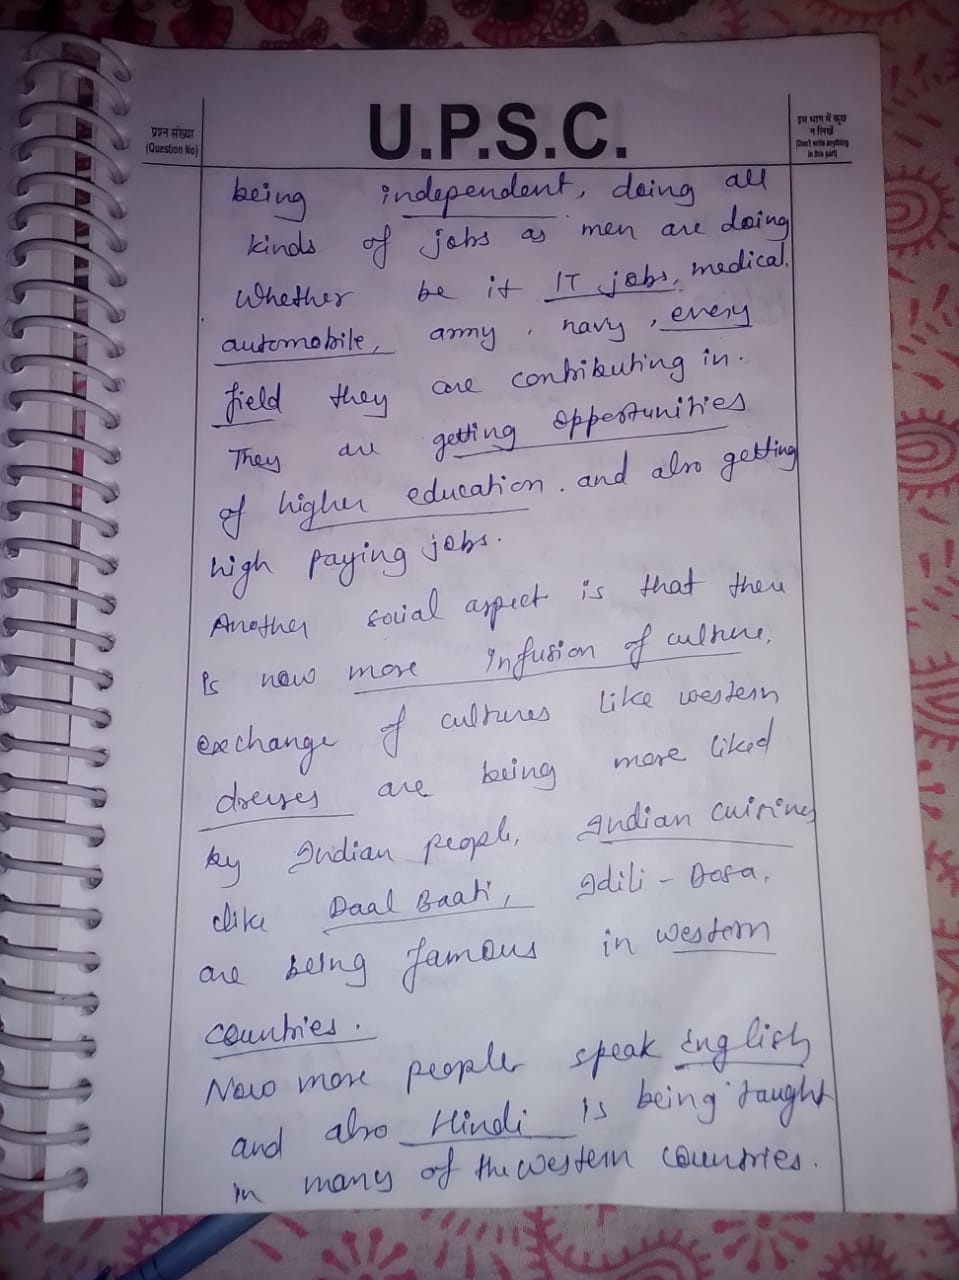 प्रश्न संख्या
(Question No)
U.P.S.C.
इस भाग में कुछ
न लिखें
(Don't write anything
in this part)
being independent, doing all
kinds of jobs as men are doing
Whether be it IT jobs, medical,
automobile, army, navy, every
field they are contributing in.
They are getting opportunities
of higher education. and also getting
high paying jobs.
Another social aspect is that there
is now more infusion of culture,
exchange of cultures like western
dresses are being more liked
by Indian people, Indian cuisines
like Daal Baati, Idili - Dosa,
are being famous in western
countries.
Now more people speak English
and also Hindi is being taught
in many of the western countries.